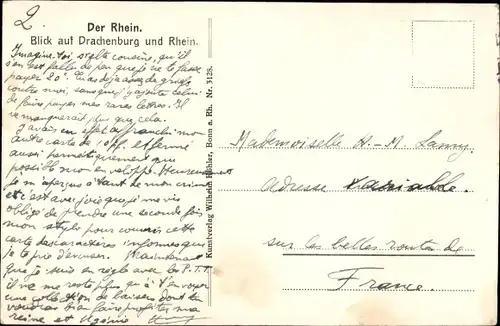 2.
Der Rhein.
Blick auf Drachenburg und Rhein.
Imagine-toi stulte cousine, qu'il
s'en est fallu de peu que je te fasse
payer 20°. Tu as déjà assez de griefs
contre moi, sans que j'y ajoute celui
de faire payer mes rares lettres. Il
ne manquerait plus que cela.
J'avais en effet affranchi mon
autre carte de 10 pf. et fermé
aussi hermétiquement que
possible mon enveloppe. Heureusement
je m'aperçus à temps de mon crime
et c'est avec joie que je me vis
obligé de prendre une seconde fois
mon stylo pour couvrir cette
carte des caractères informes que
je te prie d'excuser. Maintenant
que je suis en règle avec les P.T.T.
il ne me reste plus qu'à t'envoyer
une collection de baisers dont tu
voudras bien faire profiter ma
reine et Eugénie
Kunstverlag Wilhelm Köhler, Bonn a. Rh. Nr. 3128.
Mademoiselle A.-M. Lamy
adresse variable.
sur les belles routes de
France.